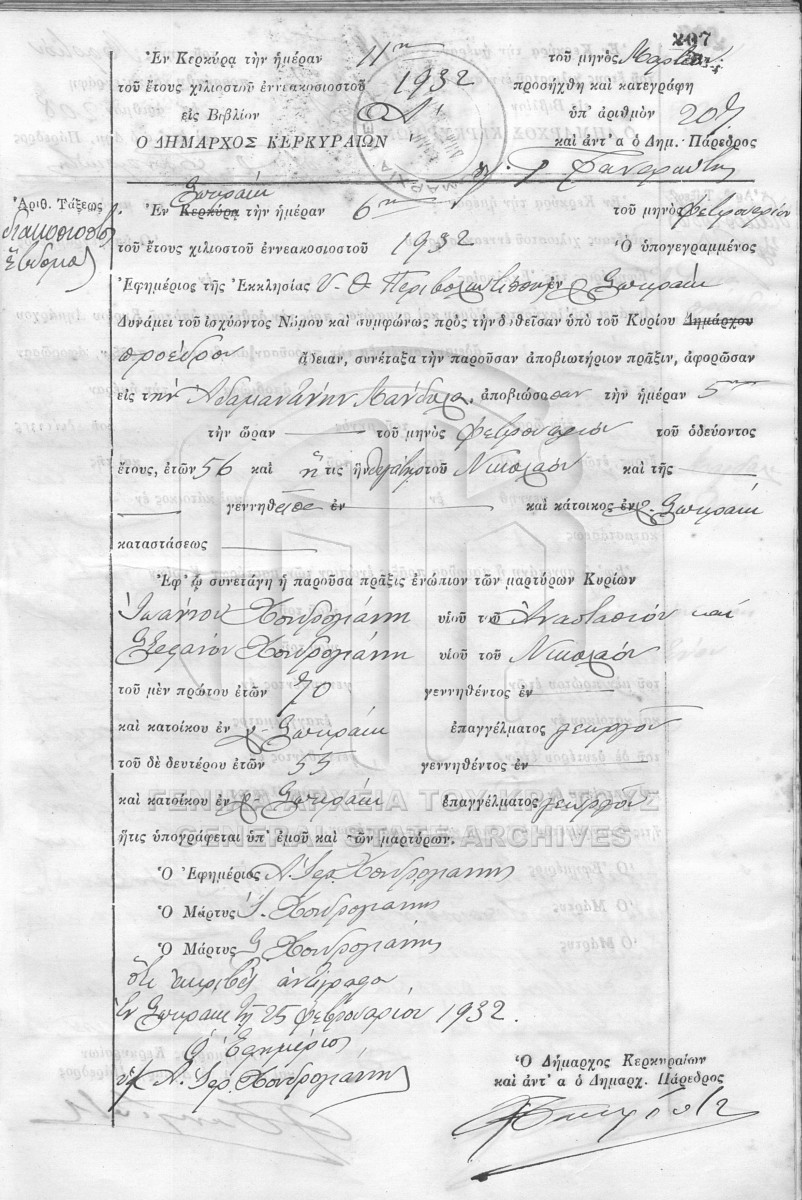 207
Ἐν Κερκύρᾳ τὴν ἡμέραν 11ην τοῦ μηνὸς Μαρτίου
τοῦ ἔτους χιλιοστοῦ ἐννεακοσιοστοῦ 1932 προσήχθη καὶ κατεγράφη
εἰς Βιβλίον Α' ὑπ' ἀριθμὸν 207
Ο ΔΗΜΑΡΧΟΣ ΚΕΡΚΥΡΑΙΩΝ καὶ ἀντ' α ὁ Δημ. Πάρεδρος
Ἀριθ. Τάξεως
διακοσιοστὸς
ἕβδομος
Ἐν Κερκύρᾳ Σωκράκι τὴν ἡμέραν 6ην τοῦ μηνὸς Φεβρουαρίου
τοῦ ἔτους χιλιοστοῦ ἐννεακοσιοστοῦ 1932 Ὁ ὑπογεγραμμένος
Ἐφημέριος τῆς Ἐκκλησίας Υ. Θ. Περιβολιωτίσσης ἐν χ. Σωκράκι
Δυνάμει τοῦ ἰσχύοντος Νόμου καὶ συμφώνως πρὸς τὴν δοθεῖσαν ὑπὸ τοῦ Κυρίου Δημάρχου
προέδρου ἄδειαν, συνέταξα τὴν παροῦσαν ἀποβιωτήριον πρᾶξιν, ἀφορῶσαν
εἰς τὴν Ἀδαμαντίνην Μάνδυλα, ἀποβιώσασαν τὴν ἡμέραν 5ην
τὴν ὥραν τοῦ μηνὸς Φεβρουαρίου τοῦ ὁδεύοντος
ἔτους, ἐτῶν 56 καὶ ἥτις ἦν θυγάτηρ τοῦ Νικολάου καὶ τῆς
γεννηθεῖσα ἐν καὶ κάτοικος ἐν χ. Σωκράκι
καταστάσεως
Ἐφ' ᾧ συνετάγη ἡ παροῦσα πρᾶξις ἐνώπιον τῶν μαρτύρων Κυρίων
Ἰωάννου Χονδρογιάννη υἱοῦ τοῦ Ἀναστασίου καὶ
Στεφάνου Χονδρογιάννη υἱοῦ τοῦ Νικολάου
τοῦ μὲν πρώτου ἐτῶν 70 γεννηθέντος ἐν
καὶ κατοίκου ἐν χ. Σωκράκι ἐπαγγέλματος γεωργοῦ
τοῦ δὲ δευτέρου ἐτῶν 55 γεννηθέντος ἐν
καὶ κατοίκου ἐν χ. Σωκράκι ἐπαγγέλματος γεωργοῦ
ΓΕΝΙΚΑ ΑΡΧΕΙΑ ΤΟΥ ΚΡΑΤΟΥΣ
ἥτις ὑπογράφεται ὑπ' ἐμοῦ καὶ τῶν μαρτύρων.
GENERAL STATE ARCHIVES
Ὁ Ἐφημέριος Α. Ἱερ. Χονδρογιάννης
Ὁ Μάρτυς Ι. Χονδρογιάννης
Ὁ Μάρτυς Σ. Χονδρογιάννης
ὅτι ἀκριβὲς ἀντίγραφον
Ἐν Σωκράκι τῇ 25 Φεβρουαρίου 1932.
Ὁ Ἐφημέριος
Α. Ἱερ. Χονδρογιάννης
Ὁ Δήμαρχος Κερκυραίων
καὶ ἀντ' α ὁ Δημαρχ. Πάρεδρος